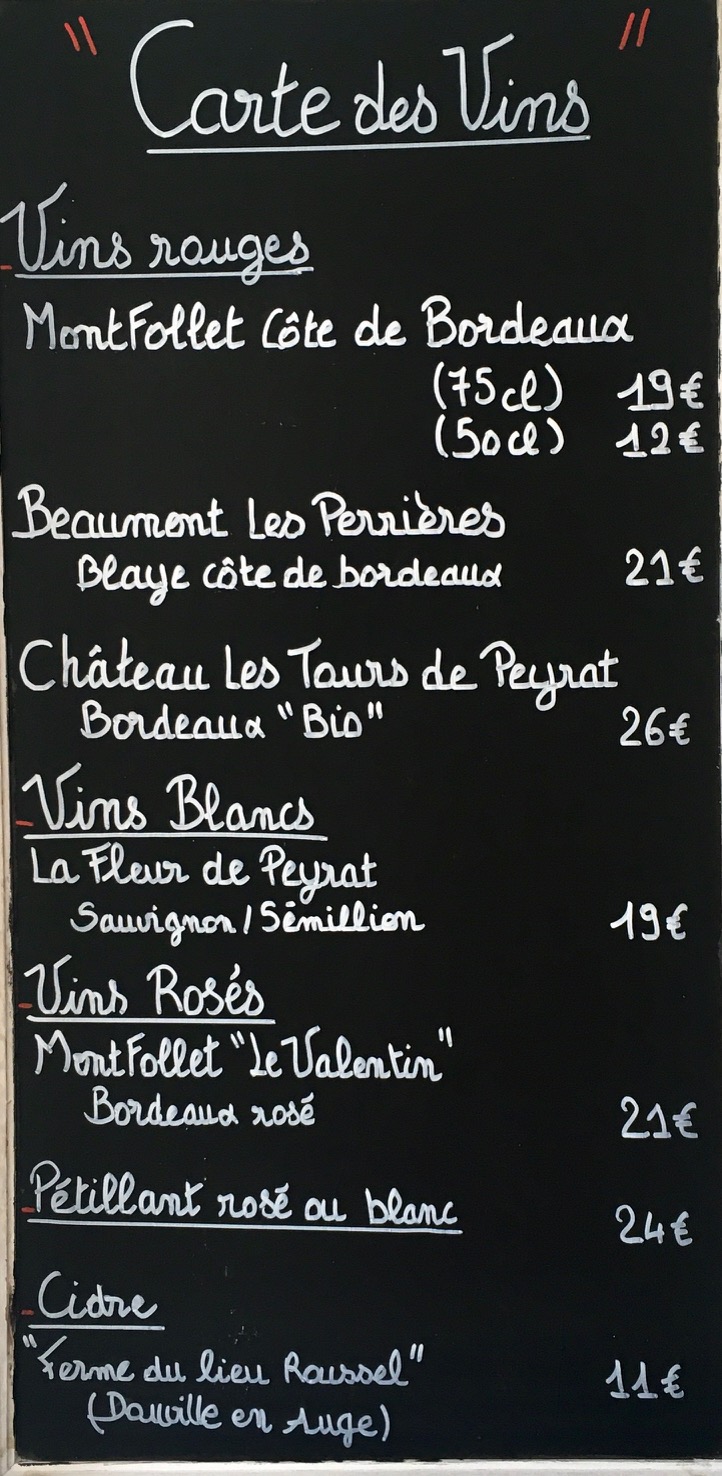 " Carte des Vins "
Vins rouges
MontFollet Côte de Bordeaux
(75cl) 19€
(50cl) 12€
Beaumont Les Perrières
Blaye côte de bordeaux 21€
Château Les Tours de Peyrat
Bordeaux "Bio" 26€
- Vins Blancs
La Fleur de Peyrat
Sauvignon / Sémillion 19€
- Vins Rosés
MontFollet "Le Valentin"
Bordeaux rosé 21€
- Pétillant rosé ou blanc 24€
- Cidre
"Ferme du lieu Roussel" 11€
(Douville en Auge)